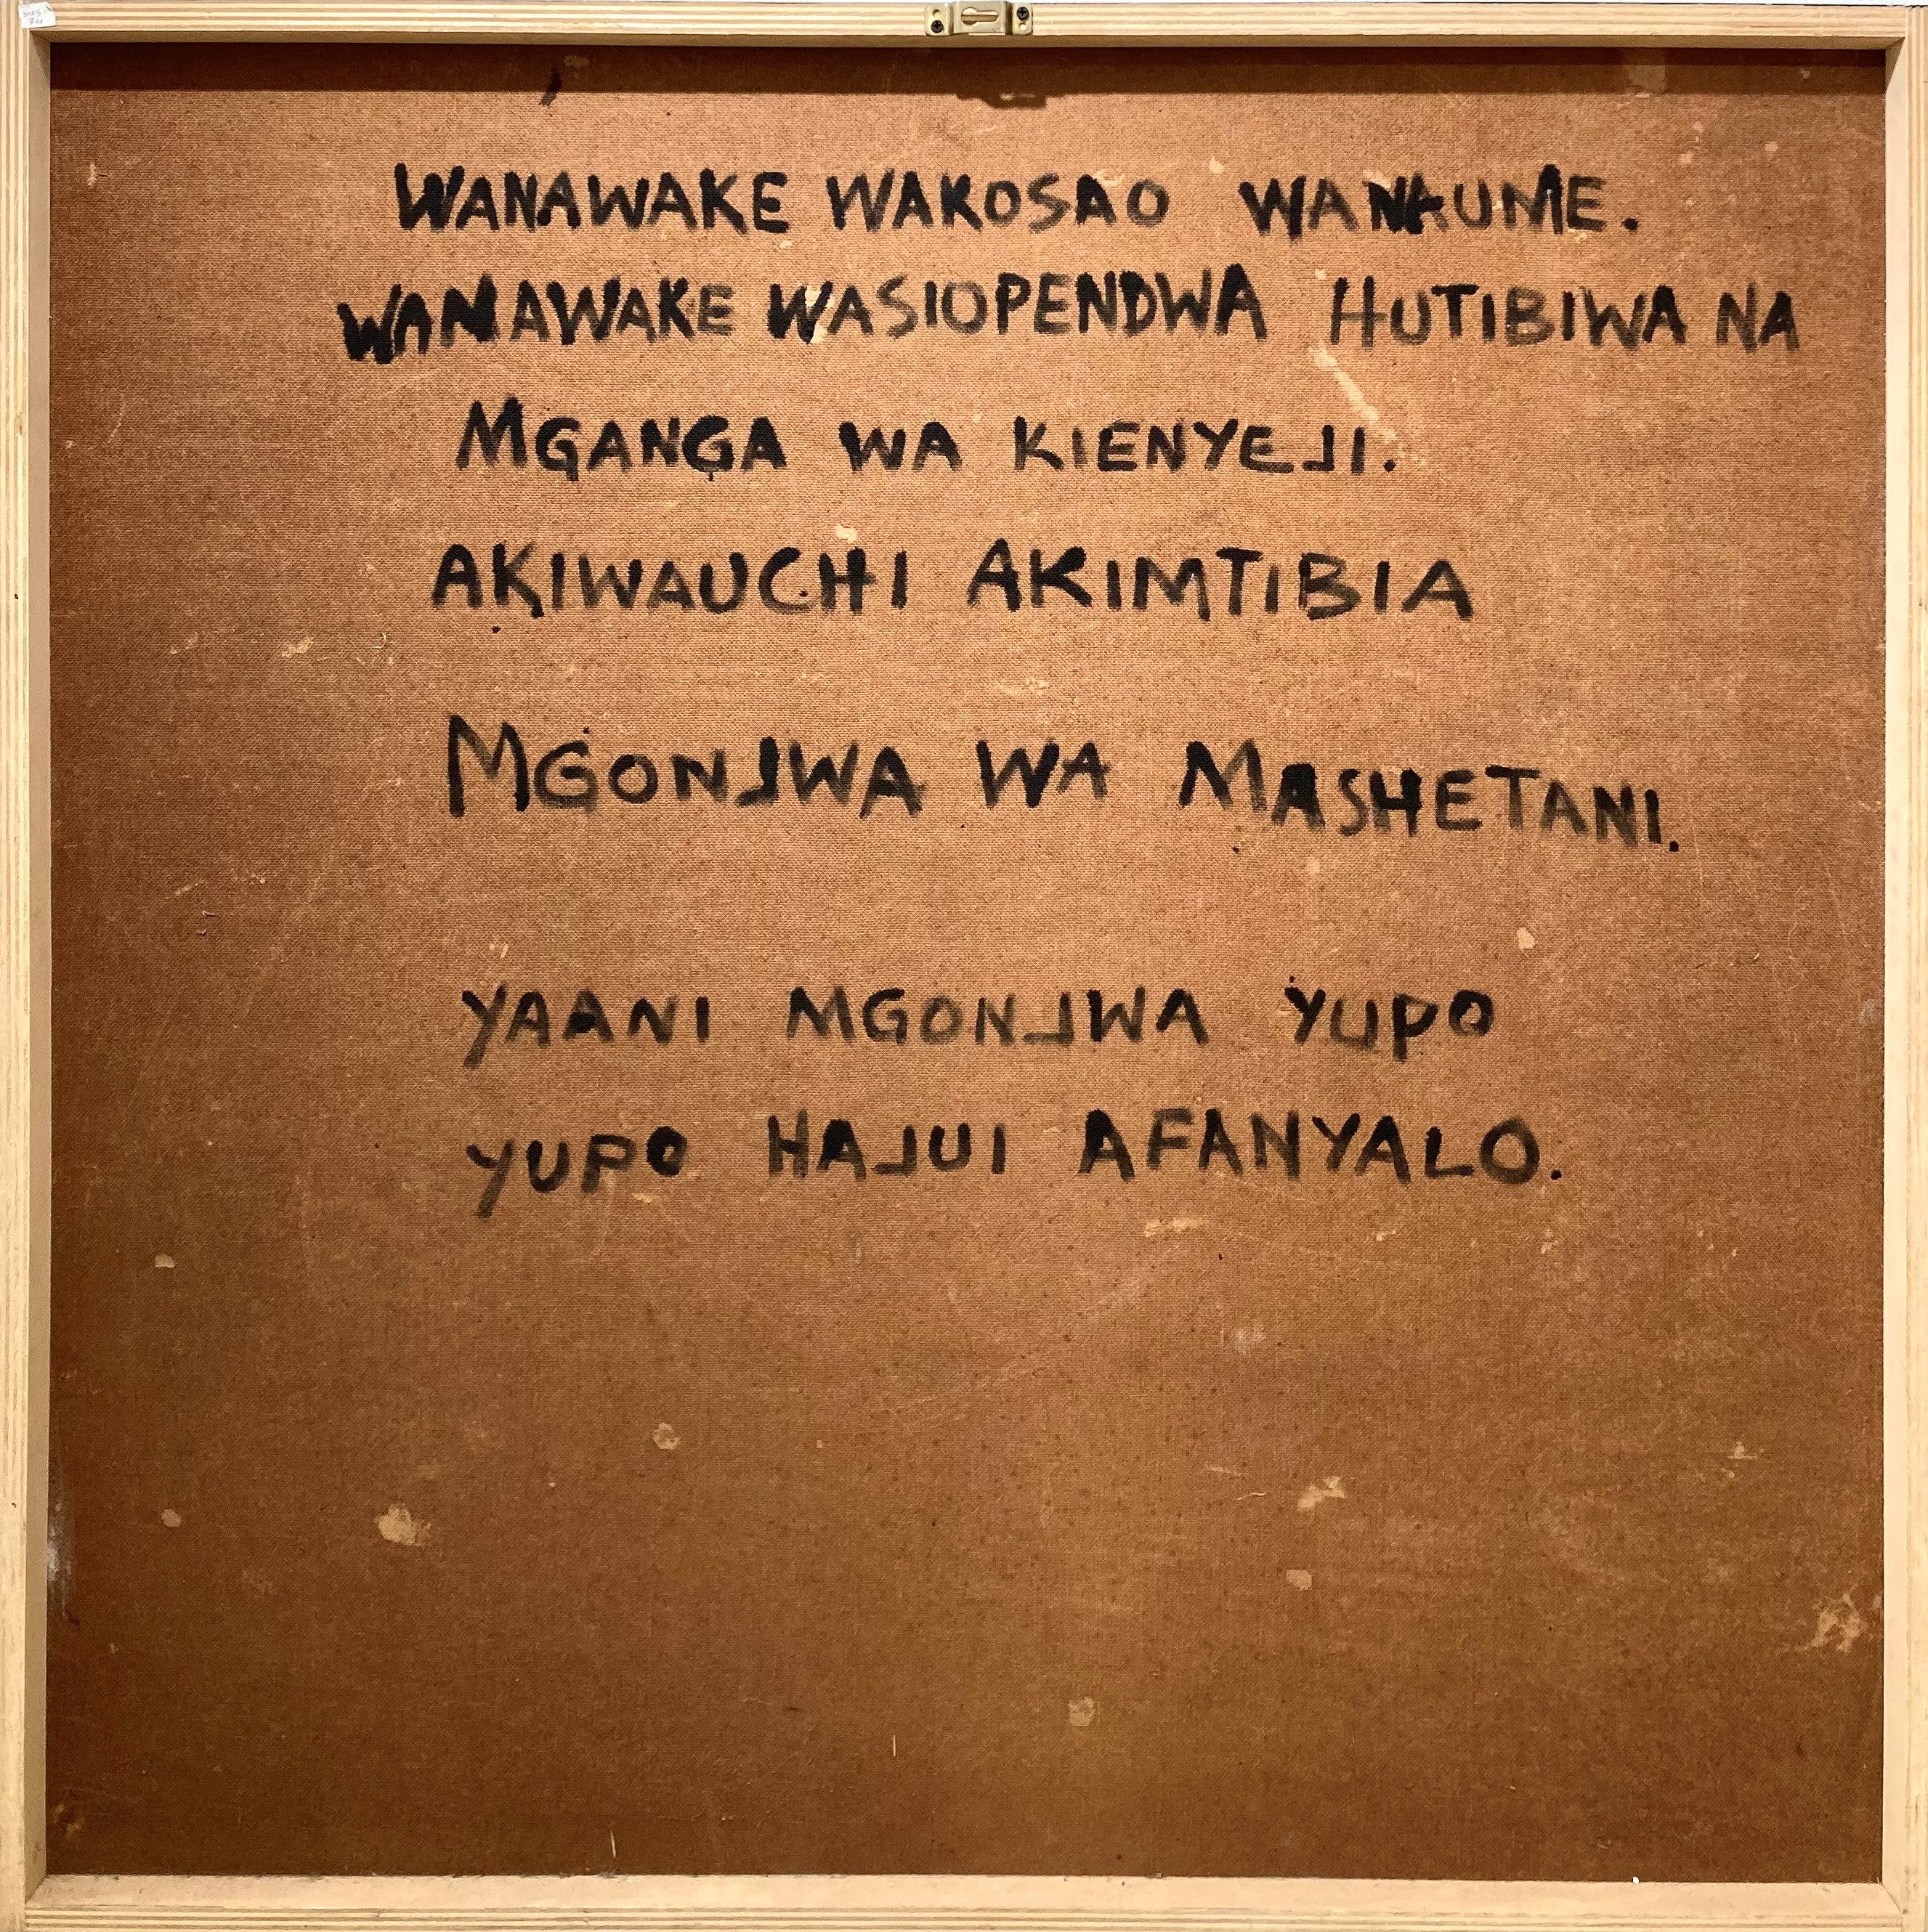 WANAWAKE WAKOSAO WANAUME.
WANAWAKE WASIOPENDWA HUTIBIWA NA
MGANGA WA KIENYEJI.
AKIWAUCHI AKIMTIBIA
MGONJWA WA MASHETANI.
YAANI MGONJWA YUPO
YUPO HAJUI AFANYALO.